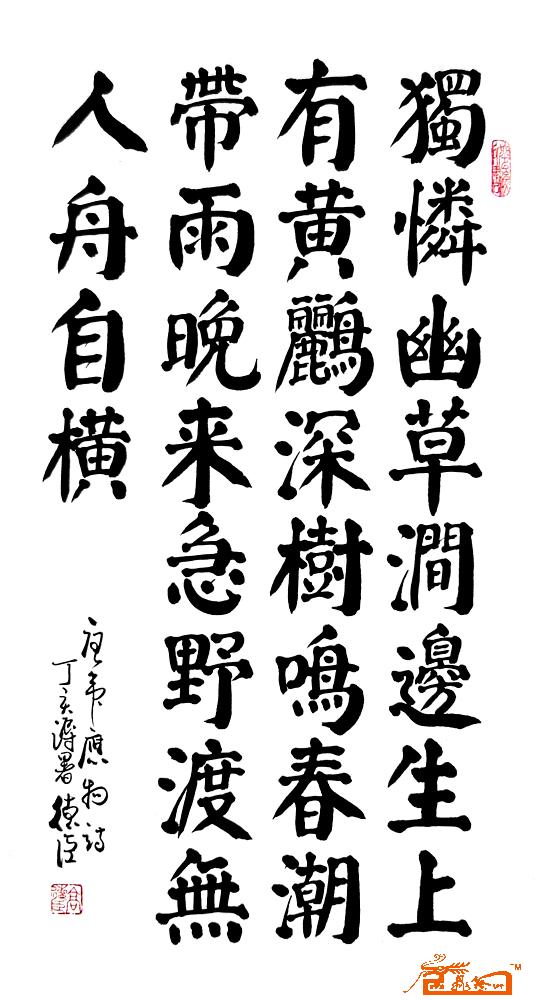 獨憐幽草澗邊生上
有黄鸝深樹鳴春潮
帶雨晚来急野渡無
人舟自横
唐韦應物詩
丁亥溽暑德臣